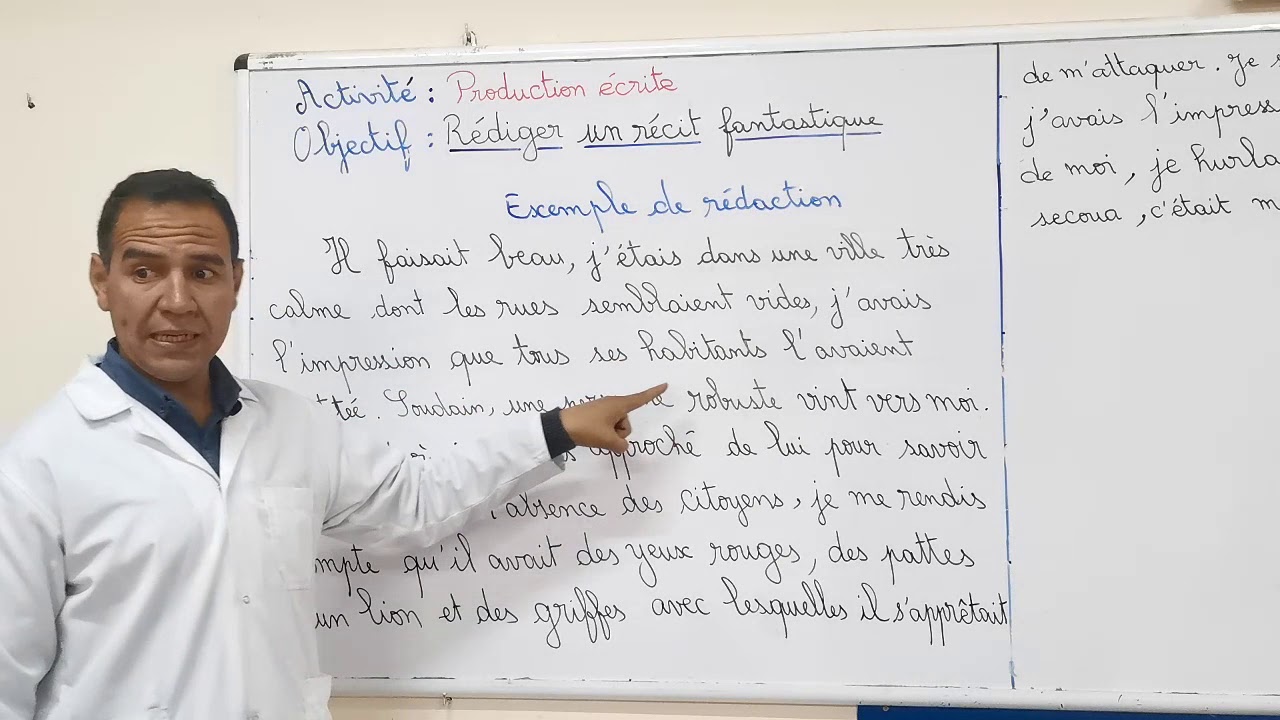 Activité : Production écrite
Objectif : Rédiger un récit fantastique
Exemple de rédaction
Il faisait beau, j'étais dans une ville très
calme dont les rues semblaient vides, j'avais
l'impression que tous ses habitants l'avaient
ttée. Soudain, une robuste vint vers moi.
approché de lui pour savoir
l'absence des citoyens, je me rendis
mpte qu'il avait des yeux rouges, des pattes
un lion et des griffes avec lesquelles il s'apprêtait
de m'attaquer. Je s
j'avais l'impress
de moi, je hurla
secoua, c'était m